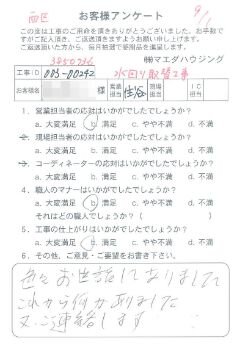 西区
お客様アンケート
9/1
この度は工事のご用命を頂きありがとうございました。お手数で
すがご記入頂き、ご返送頂きますようお願い申し上げます。
ご返送頂いた方から、毎月抽選で粗品を進呈します。
㈱マエダハウジング
工事ID
水回り取替工事
お客様名
様
営業担当
現場担当
IC担当
1. 営業担当者の応対はいかがでしたでしょうか?
a. 大変満足 b. 満足 c. やや不満 d. 不満
2. 現場担当者の応対はいかがでしたでしょうか?
a. 大変満足 b. 満足 c. やや不満 d. 不満
3. コーディネーターの応対はいかがでしたでしょうか?
a. 大変満足 b. 満足 c. やや不満 d. 不満
4. 職人のマナーはいかがでしたでしょうか?
a. 大変満足 b. 満足 c. やや不満 d. 不満
それはどの職人でしょうか?( )
5. 工事の仕上がりはいかがでしたでしょうか?
a. 大変満足 b. 満足 c. やや不満 d. 不満
6. その他、ご意見・ご要望をお書き下さい。
色々お世話になりまして
これから何かありました
又ご連絡します